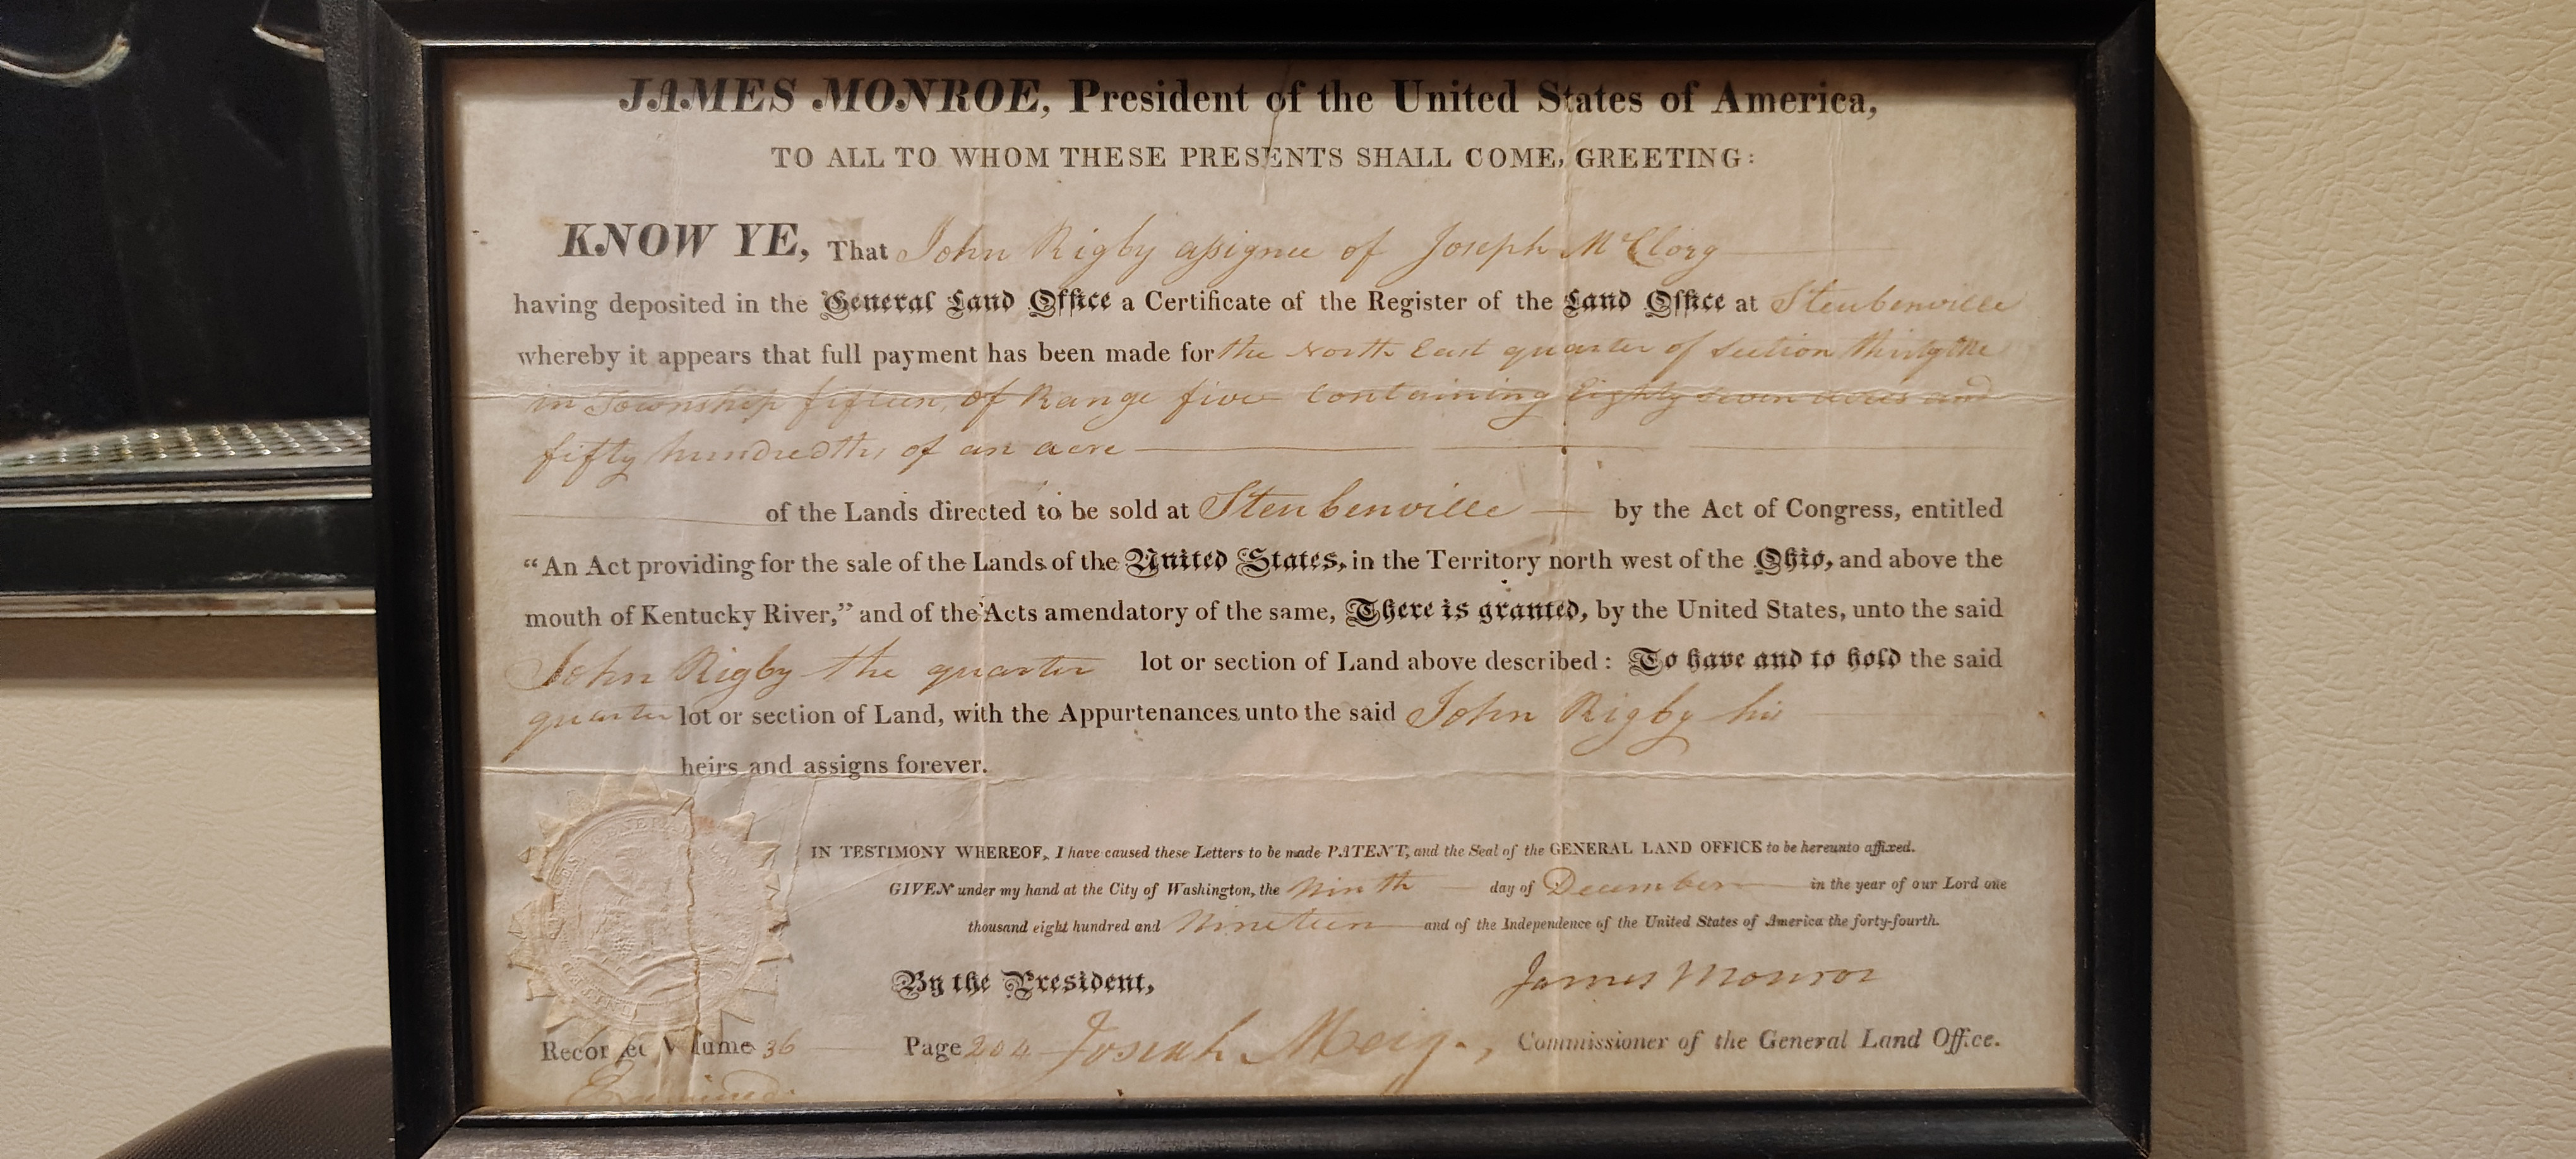 JAMES MONROE, President of the United States of America,
TO ALL TO WHOM THESE PRESENTS SHALL COME, GREETING:
KNOW YE, That John Rigby assignee of Joseph McClorg
having deposited in the General Land Office a Certificate of the Register of the Land Office at Steubenville
whereby it appears that full payment has been made for the North East quarter of Section
in Township fifteen, of Range five containing Eighty seven acres and
fifty hundredths of an acre
of the Lands directed to be sold at Steubenville by the Act of Congress, entitled
“An Act providing for the sale of the Lands of the United States, in the Territory north west of the Ohio, and above the
mouth of Kentucky River,” and of the Acts amendatory of the same, There is granted, by the United States, unto the said
John Rigby the quarter lot or section of Land above described: To have and to hold the said
quarter lot or section of Land, with the Appurtenances unto the said John Rigby his
heirs and assigns forever.
IN TESTIMONY WHEREOF, I have caused these Letters to be made PATENT, and the Seal of the GENERAL LAND OFFICE to be hereunto affixed.
GIVEN under my hand at the City of Washington, the Ninth day of December in the year of our Lord one
thousand eight hundred and Nineteen and of the Independence of the United States of America the forty-fourth.
By the President, James Monroe
Recorded Volume 36 Page 204 Josiah Meigs, Commissioner of the General Land Office.
Examined